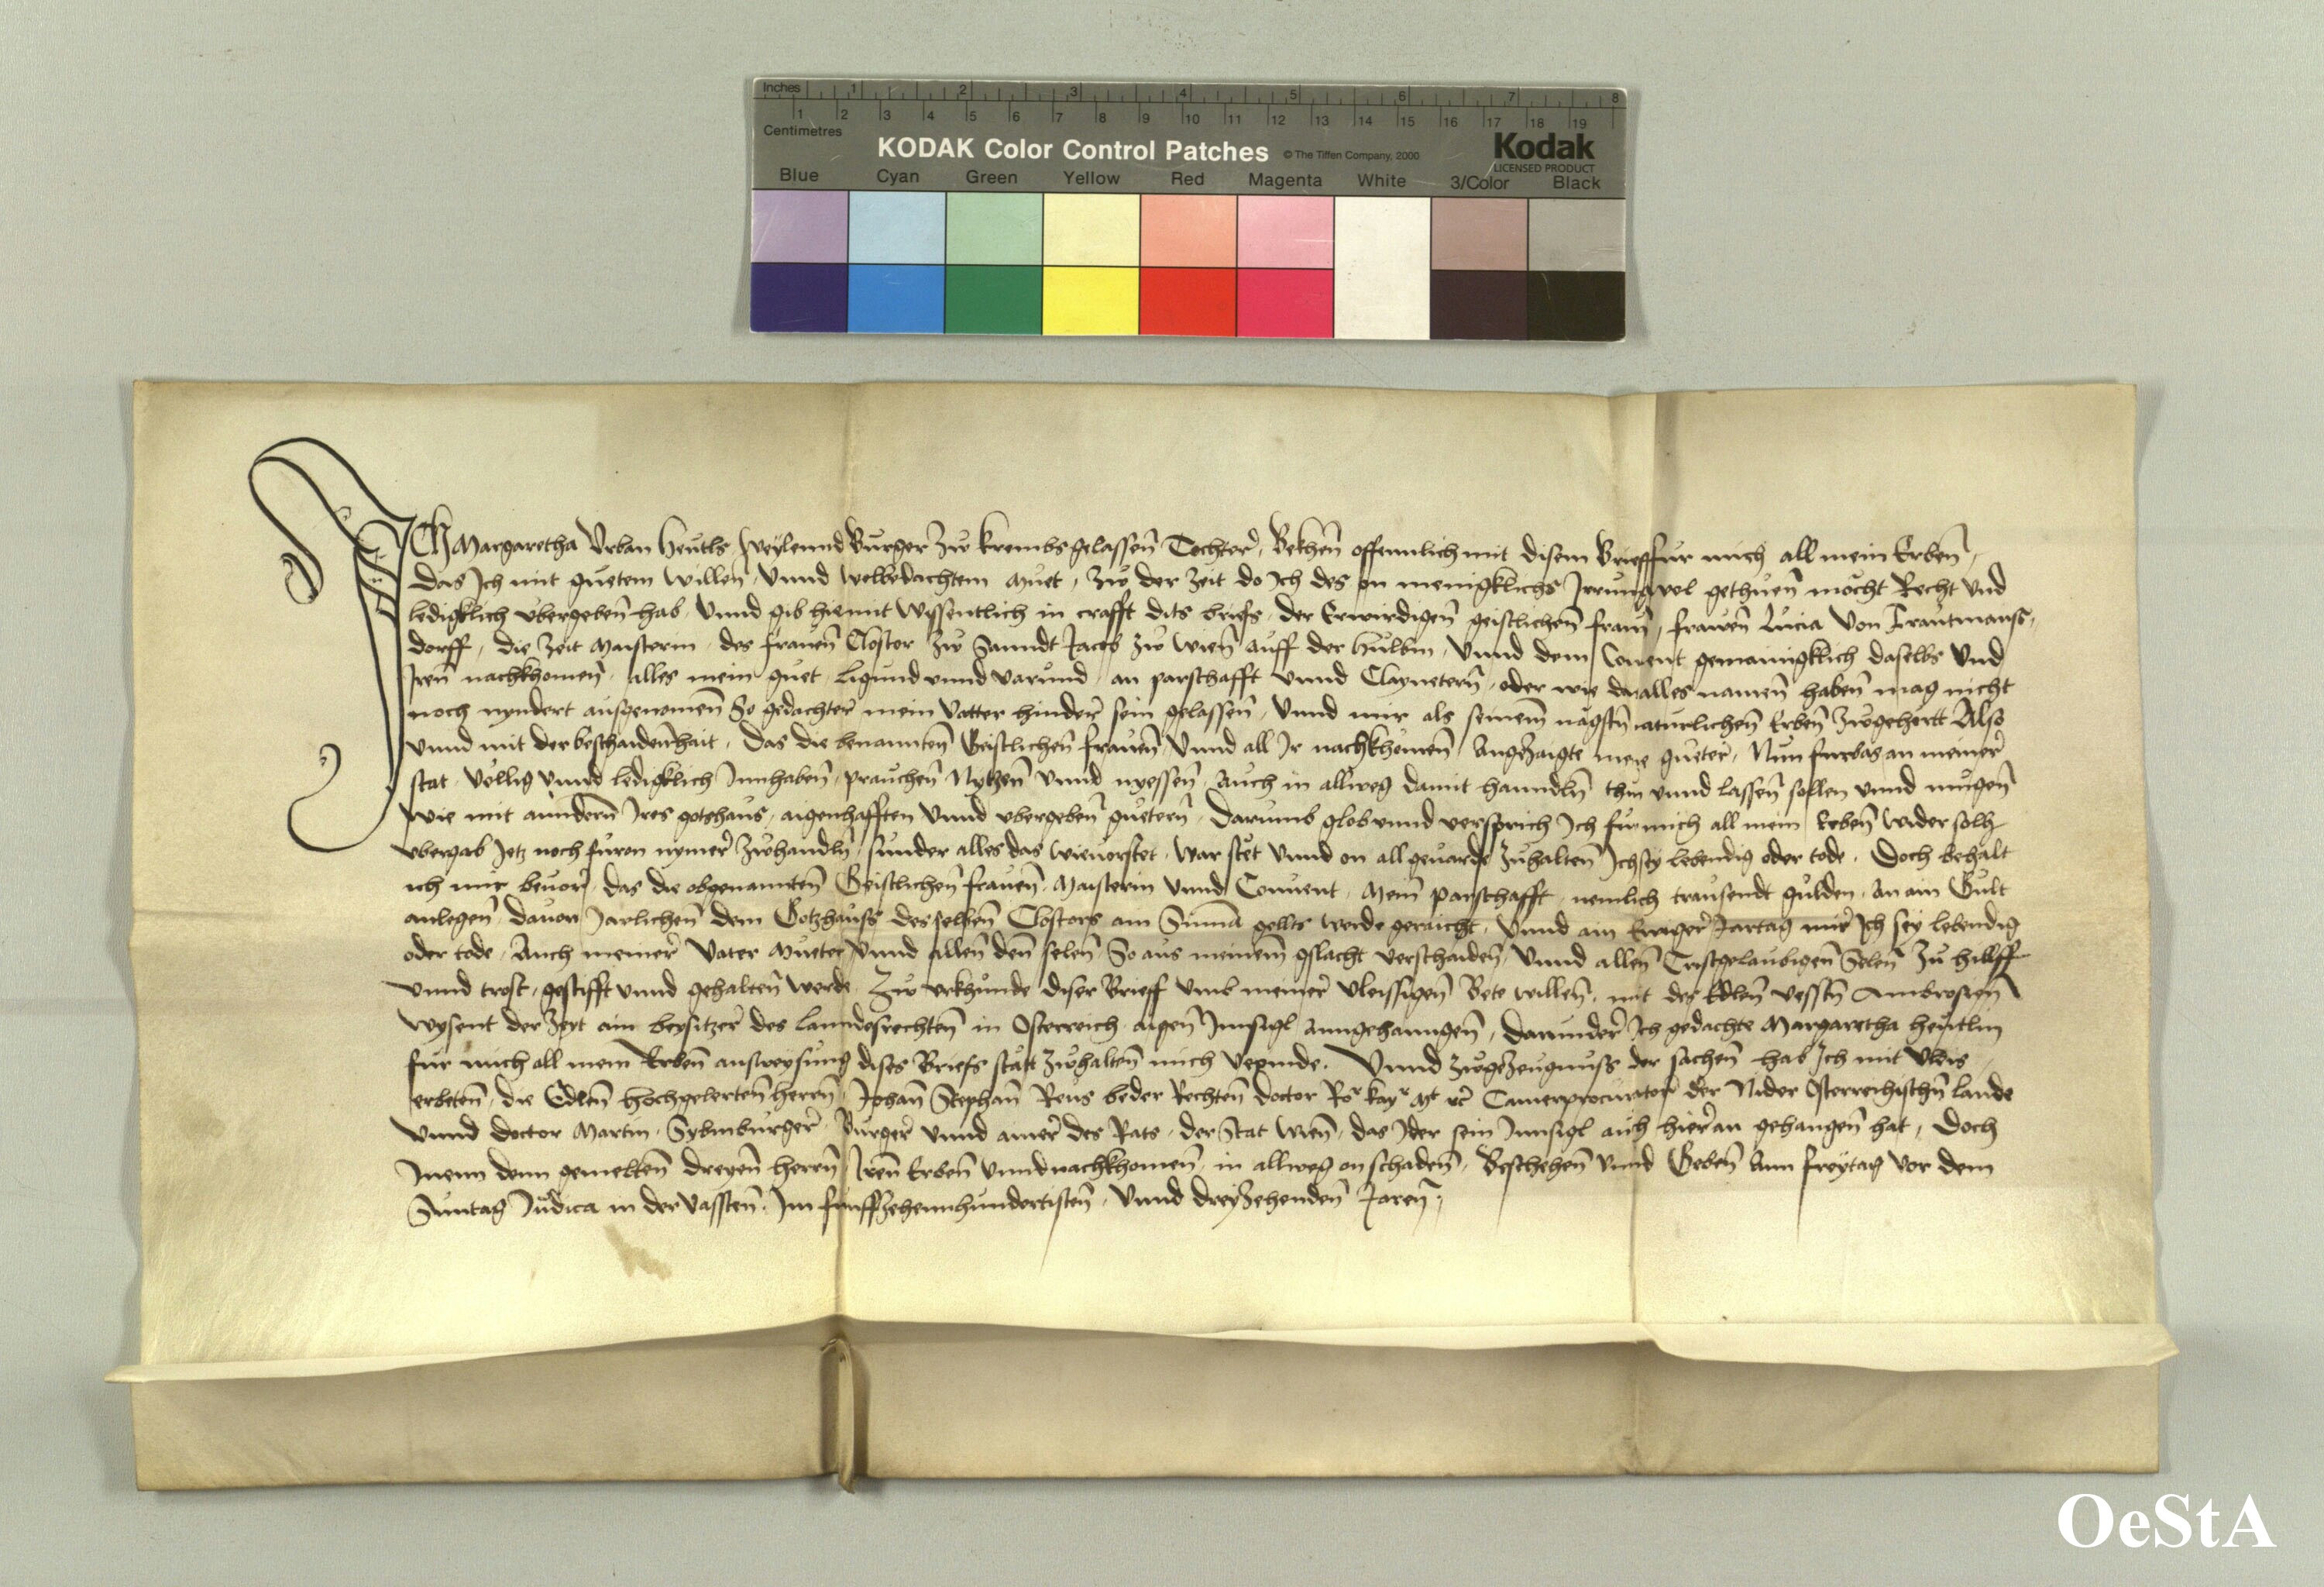 Inches 1 2 3 4 5 6 7 8
1 2 3 4 5 6 7 8 9 10 11 12 13 14 15 16 17 18 19
Centimetres
KODAK Color Control Patches © The Tiffen Company, 2000 Kodak
LICENSED PRODUCT
Blue Cyan Green Yellow Red Magenta White 3/Color Black
ICh Margaretha Vrban Heutls weylennd Burger zw Krembs gelassen Tochter, Bekhen offennlich mit disem Brieff fur mich all mein Erben,
das Ich mit guetem willen vnnd wolbedachtem muet, zw der zeit do Ich des on menigklichs Irrung wol gethuen mocht Recht vnd
ledigklich vbergeben hab vnnd gib hiemit wissentlich in crafft dits briefs, der Erwirdigen geistlichen frawn, frawen Lucia von Trautmans,
dorff, die zeit Maisterin, des frauen Closter zw Sanndt Jacob zw Wien auff der Hulbm, vnnd dem Conuent gemainigklich daselbs vnd
Iren nachkhomen, alles mein guet, ligund vnnd varund, an parschafft vnnd Claynetern, oder wie das alles namen haben mag nicht
noch nyndert ausgenomen So gedachter mein Vatter hinder sein gelassen, vnnd mir als seinem nagstn naturlichen Erben zwgehortt Also
vnnd mit der beschaidenhait, das die benannten Geistlichen frauen vnnd all Ir nachkhomen, Angezaigte mein gueter, Nun furbas an meiner
stat vollig vnnd ledigklich Innhaben, prauchen Nytzen vnnd nyessen, Auch in allweg damit hanndln thun vnnd lassen sollen vnnd mugen
wie mit anndern Ires gotshaus, aigenhafften vnnd vbergeben guetern, Darumb glob vnnd versprich Ich fur mich all mein Erben wider solh
vbergab Jetz noch furon nymer zwhandln, sunder alles das wieuorstet, war stet vnnd on all geuarde zuhalten Ich sey lebendig oder tode. Doch behalt
ich mir beuor, das die obgenannten Geistlichen frauen, Maisterin vnnd Conuent, Mein parschafft, nemlich trausendt gulden, An ain Gult
anlegen, dauon Jarlichen dem Gotzhauss desselben Closters am Summa gellts werde geraicht, vnnd ain Ewiger Jartag mir Ich sey lebendig
oder tode, Auch meiner Vater Mueter vnnd allen den selen So aus meinem gslacht verschaiden, vnnd allen Cristgelaubigen Selen zu hillff
vnnd trost, gestifft vnnd gehalten werde, Zw vrkhunde diser Brieff vmb meiner vleissigen Bete willen, mit des Edlen vesstn Ambrosien
Wysent der Zeyt ain beysitzer des lanndsrechten in Osterreich aigen Innsigl anngehanngen, darunder Ich gedachte Margaretha Heutlin
fur mich all mein Erben ausweysung dises Briefs statt zwhalten mich verpinde. Vnnd zwgezeugnuss der sachen hab Ich mit vleis
erbeten, die Edlen Hochgelerten herrn, Johan Stephan Reus beder Rechten Doctor Ro kay Mt etc Camerprocurator der Nider Osterreichischn lande
vnnd doctor Martin Sybmburger Burger vnnd ainer des Rats der Stat Wien, das Ider sein Innsigl auch hieran gehangen hat, Doch
Inenn denn gemelten dreyen herrn Iren Erben vnnd nachkhomen, in allweg on schaden, Beschehen vnnd Geben Am freytag vor dem
Suntag Judica in der vassten. Im funffzehennhundertisten, vnnd dreyzehenden Jaren,
OeStA